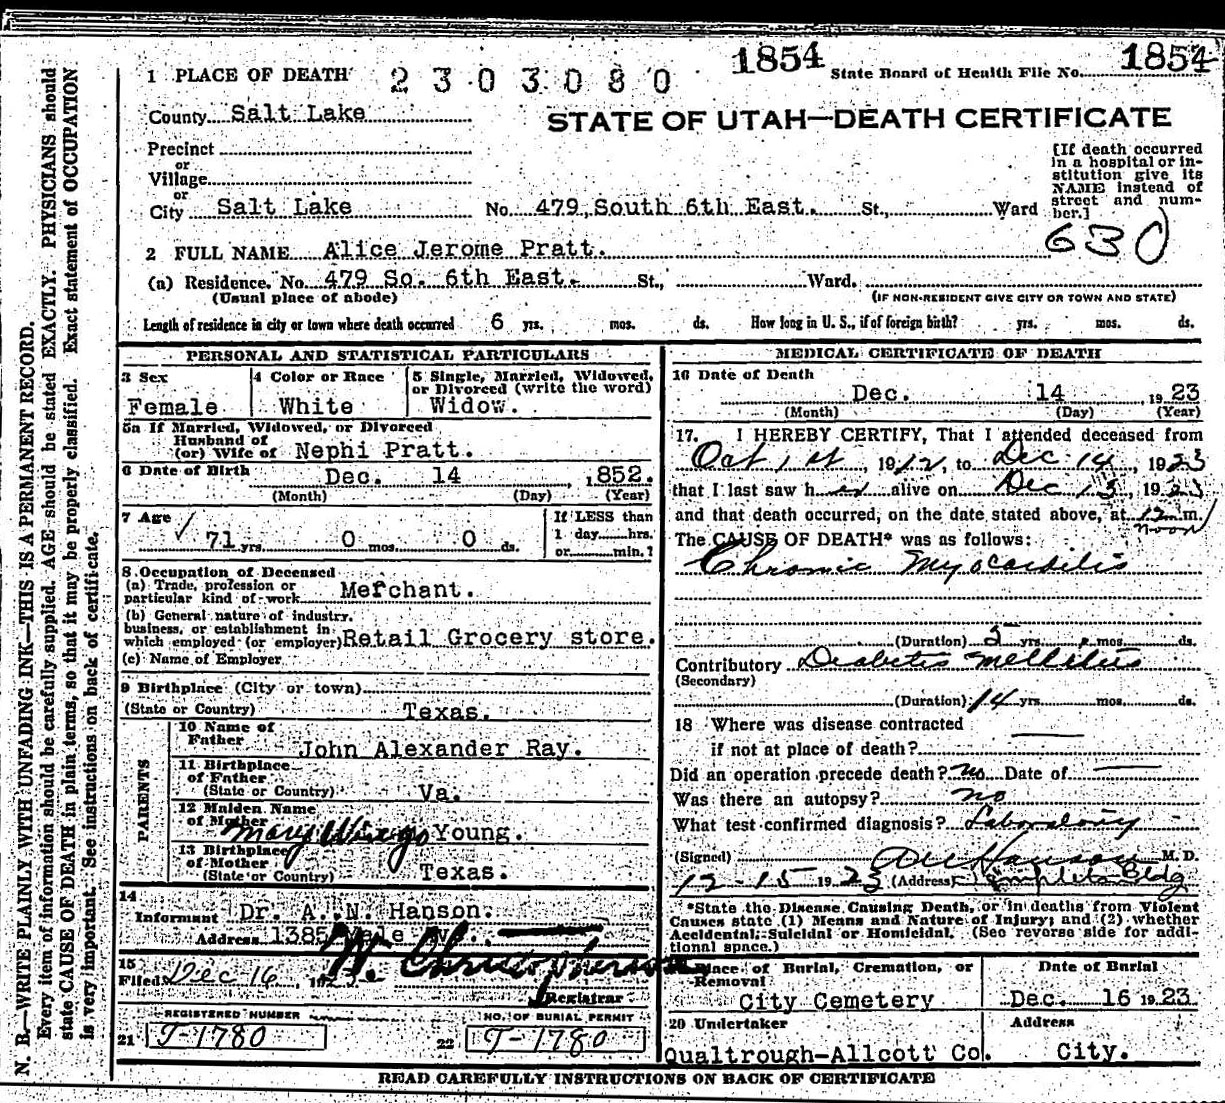 1854
State Board of Health File No. 1854
1 PLACE OF DEATH 2303080
County Salt Lake
STATE OF UTAH—DEATH CERTIFICATE
Precinct
or
Village
or
City Salt Lake No. 479 South 6th East. St., Ward
[If death occurred
in a hospital or in-
stitution give its
NAME instead of
street and num-
ber.]
630
2 FULL NAME Alice Jerome Pratt.
(a) Residence. No. 479 So. 6th East. St., Ward.
(Usual place of abode) (IF NON-RESIDENT GIVE CITY OR TOWN AND STATE)
Length of residence in city or town where death occurred 6 yrs. mos. ds. How long in U. S., if of foreign birth? yrs. mos. ds.
PERSONAL AND STATISTICAL PARTICULARS
3 Sex
Female
4 Color or Race
White
5 Single, Married, Widowed,
or Divorced (write the word)
Widow.
5a If Married, Widowed, or Divorced
Husband of
(or) Wife of Nephi Pratt.
6 Date of Birth Dec. 14, 1852.
(Month) (Day) (Year)
7 Age
71 yrs. 0 mos. 0 ds.
If LESS than
1 day hrs.
or min.?
8 Occupation of Deceased
(a) Trade, profession or
particular kind of work Merchant.
(b) General nature of industry.
business, or establishment in
which employed (or employer) Retail Grocery store.
(c) Name of Employer
9 Birthplace (City or town)
(State or Country) Texas.
PARENTS
10 Name of
Father John Alexander Ray.
11 Birthplace
of Father
(State or Country) Va.
12 Maiden Name
of Mother Mary Young.
13 Birthplace
of Mother
(State or Country) Texas.
14
Informant Dr. A. N. Hanson.
Address 1385 Yale Av.
15
Filed Dec 16, 1923 W. Christopherson
Registrar
REGISTERED NUMBER
21 T-1780
NO. OF BURIAL PERMIT
22 T-1780
MEDICAL CERTIFICATE OF DEATH
16 Date of Death
Dec. 14, 1923
(Month) (Day) (Year)
17. I HEREBY CERTIFY, That I attended deceased from
Oct 1st, 1912, to Dec 14, 1923
that I last saw her alive on Dec 13, 1923
and that death occurred, on the date stated above, at 12 m.
noon
The CAUSE OF DEATH* was as follows:
Chronic Myocarditis
(Duration) 5 yrs. mos. ds.
Contributory Diabetis Mellitus
(Secondary)
(Duration) 14 yrs. mos. ds.
18 Where was disease contracted
if not at place of death?
Did an operation precede death? no Date of
Was there an autopsy? no
What test confirmed diagnosis? Laboratory
(Signed) Hanson M. D.
12-15 1923 (Address) Templeton Bldg
*State the Disease Causing Death, or in deaths from Violent
Causes state (1) Means and Nature of Injury; and (2) whether
Accidental, Suicidal or Homicidal. (See reverse side for addi-
tional space.)
Place of Burial, Cremation, or
Removal
City Cemetery
Date of Burial
Dec. 16 1923
20 Undertaker
Qualtrough-Allcott Co.
Address
City.
READ CAREFULLY INSTRUCTIONS ON BACK OF CERTIFICATE
N. B.—WRITE PLAINLY WITH UNFADING INK—THIS IS A PERMANENT RECORD.
Every item of information should be carefully supplied. AGE should be stated EXACTLY. PHYSICIANS should
state CAUSE OF DEATH in plain terms, so that it may be properly classified. Exact statement of OCCUPATION
is very important. See instructions on back of certificate.